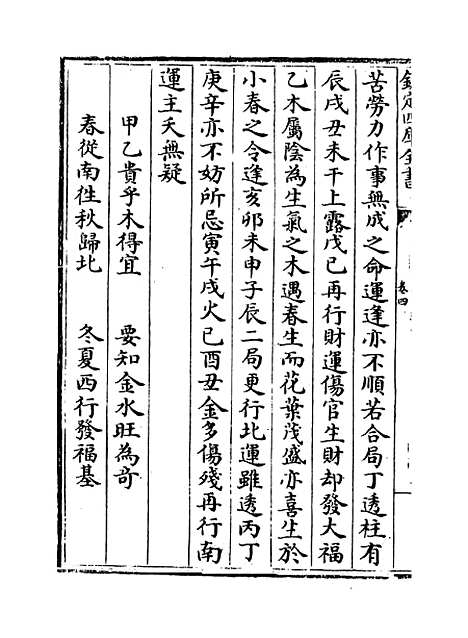 欽定四庫全書
卷四
苦勞力作事無成之命運逢亦不順若合局丁透柱有
辰戌丑未干上露戊己再行財運傷官生財却發大福
乙木屬陰為生氣之木遇春生而花葉茂盛亦喜生於
小春之令逢亥卯未申子辰二局更行北運雖透丙丁
庚辛亦不妨所忌寅午戌火巳酉丑金多傷殘再行南
運主夭無疑
甲乙貴乎木得宜　要知金水旺為奇
春從南徃秋歸北　冬夏西行發福基